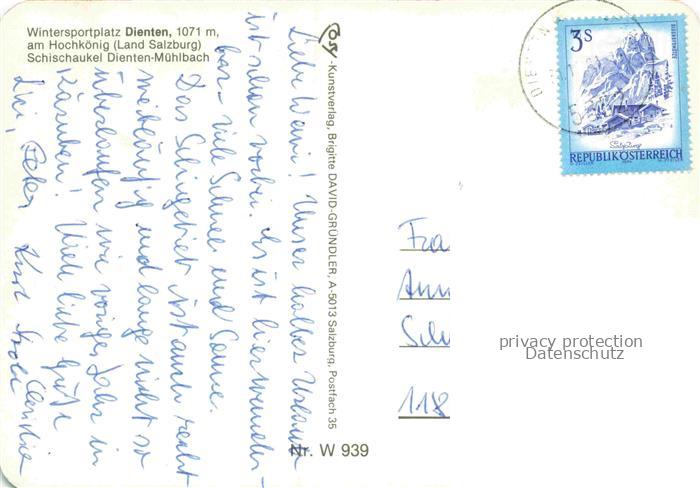 Wintersportplatz Dienten, 1071 m,
am Hochkönig (Land Salzburg)
Schischaukel Dienten-Mühlbach
Cosy-Kunstverlag, Brigitte DAVID-GRÜNDLER, A-5013 Salzburg, Postfach 35
Nr. W 939
Liebe! Unser halber Urlaub
ist schon vorbei. Es ist hier wunder-
bar - viel Schnee und Sonne.
Das Schigebiet ist auch recht
weitläufig und lange nicht so
überlaufen wie voriges Jahr in
! Viele liebe Grüße
Peter
3 S
REPUBLIK ÖSTERREICH
Fra
Ann
Sch
118
privacy protection
Datenschutz